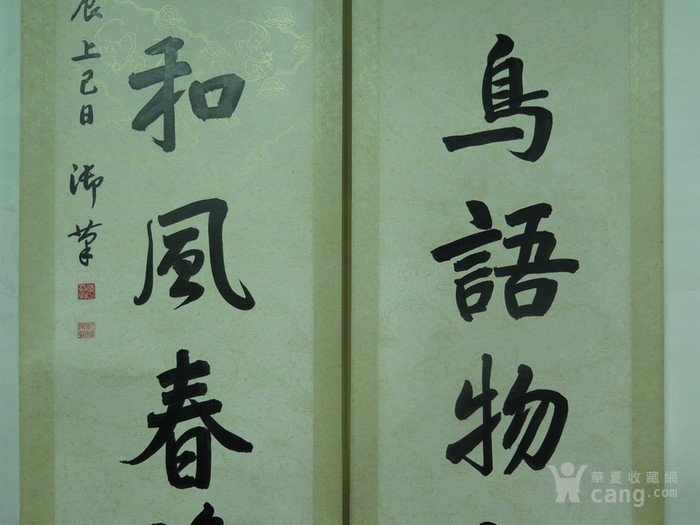 鳥語物
和風春
辰上巳日
御筆
華夏收藏網
cang.com